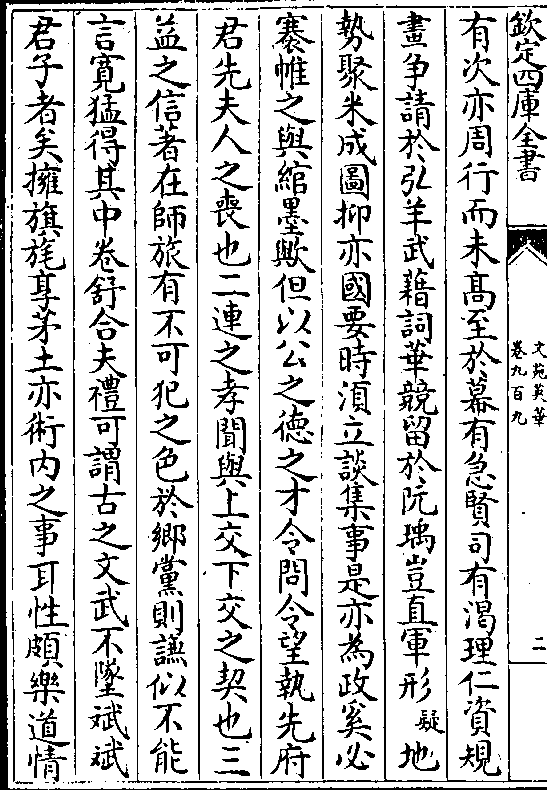 欽定四庫全書
文苑英華
卷九百九
二
有次亦周行而未髙至於幕有急賢司有渴理仁資規
畫争請於弘羊武藉詞華競留於阮瑀豈直軍形疑地
勢聚米成圖抑亦國要時湏立談集事是亦為政奚必
褰帷之與綰墨歟但以公之徳之才令問令望執先府
君先夫人之喪也二連之孝聞與上交下交之契也三
益之信著在師旅有不可犯之色於鄉黨則謙似不能
言寛猛得其中卷舒合夫禮可謂古之文武不墜斌斌
君子者矣擁旗旄享茅土亦術内之事耳性頗樂道情